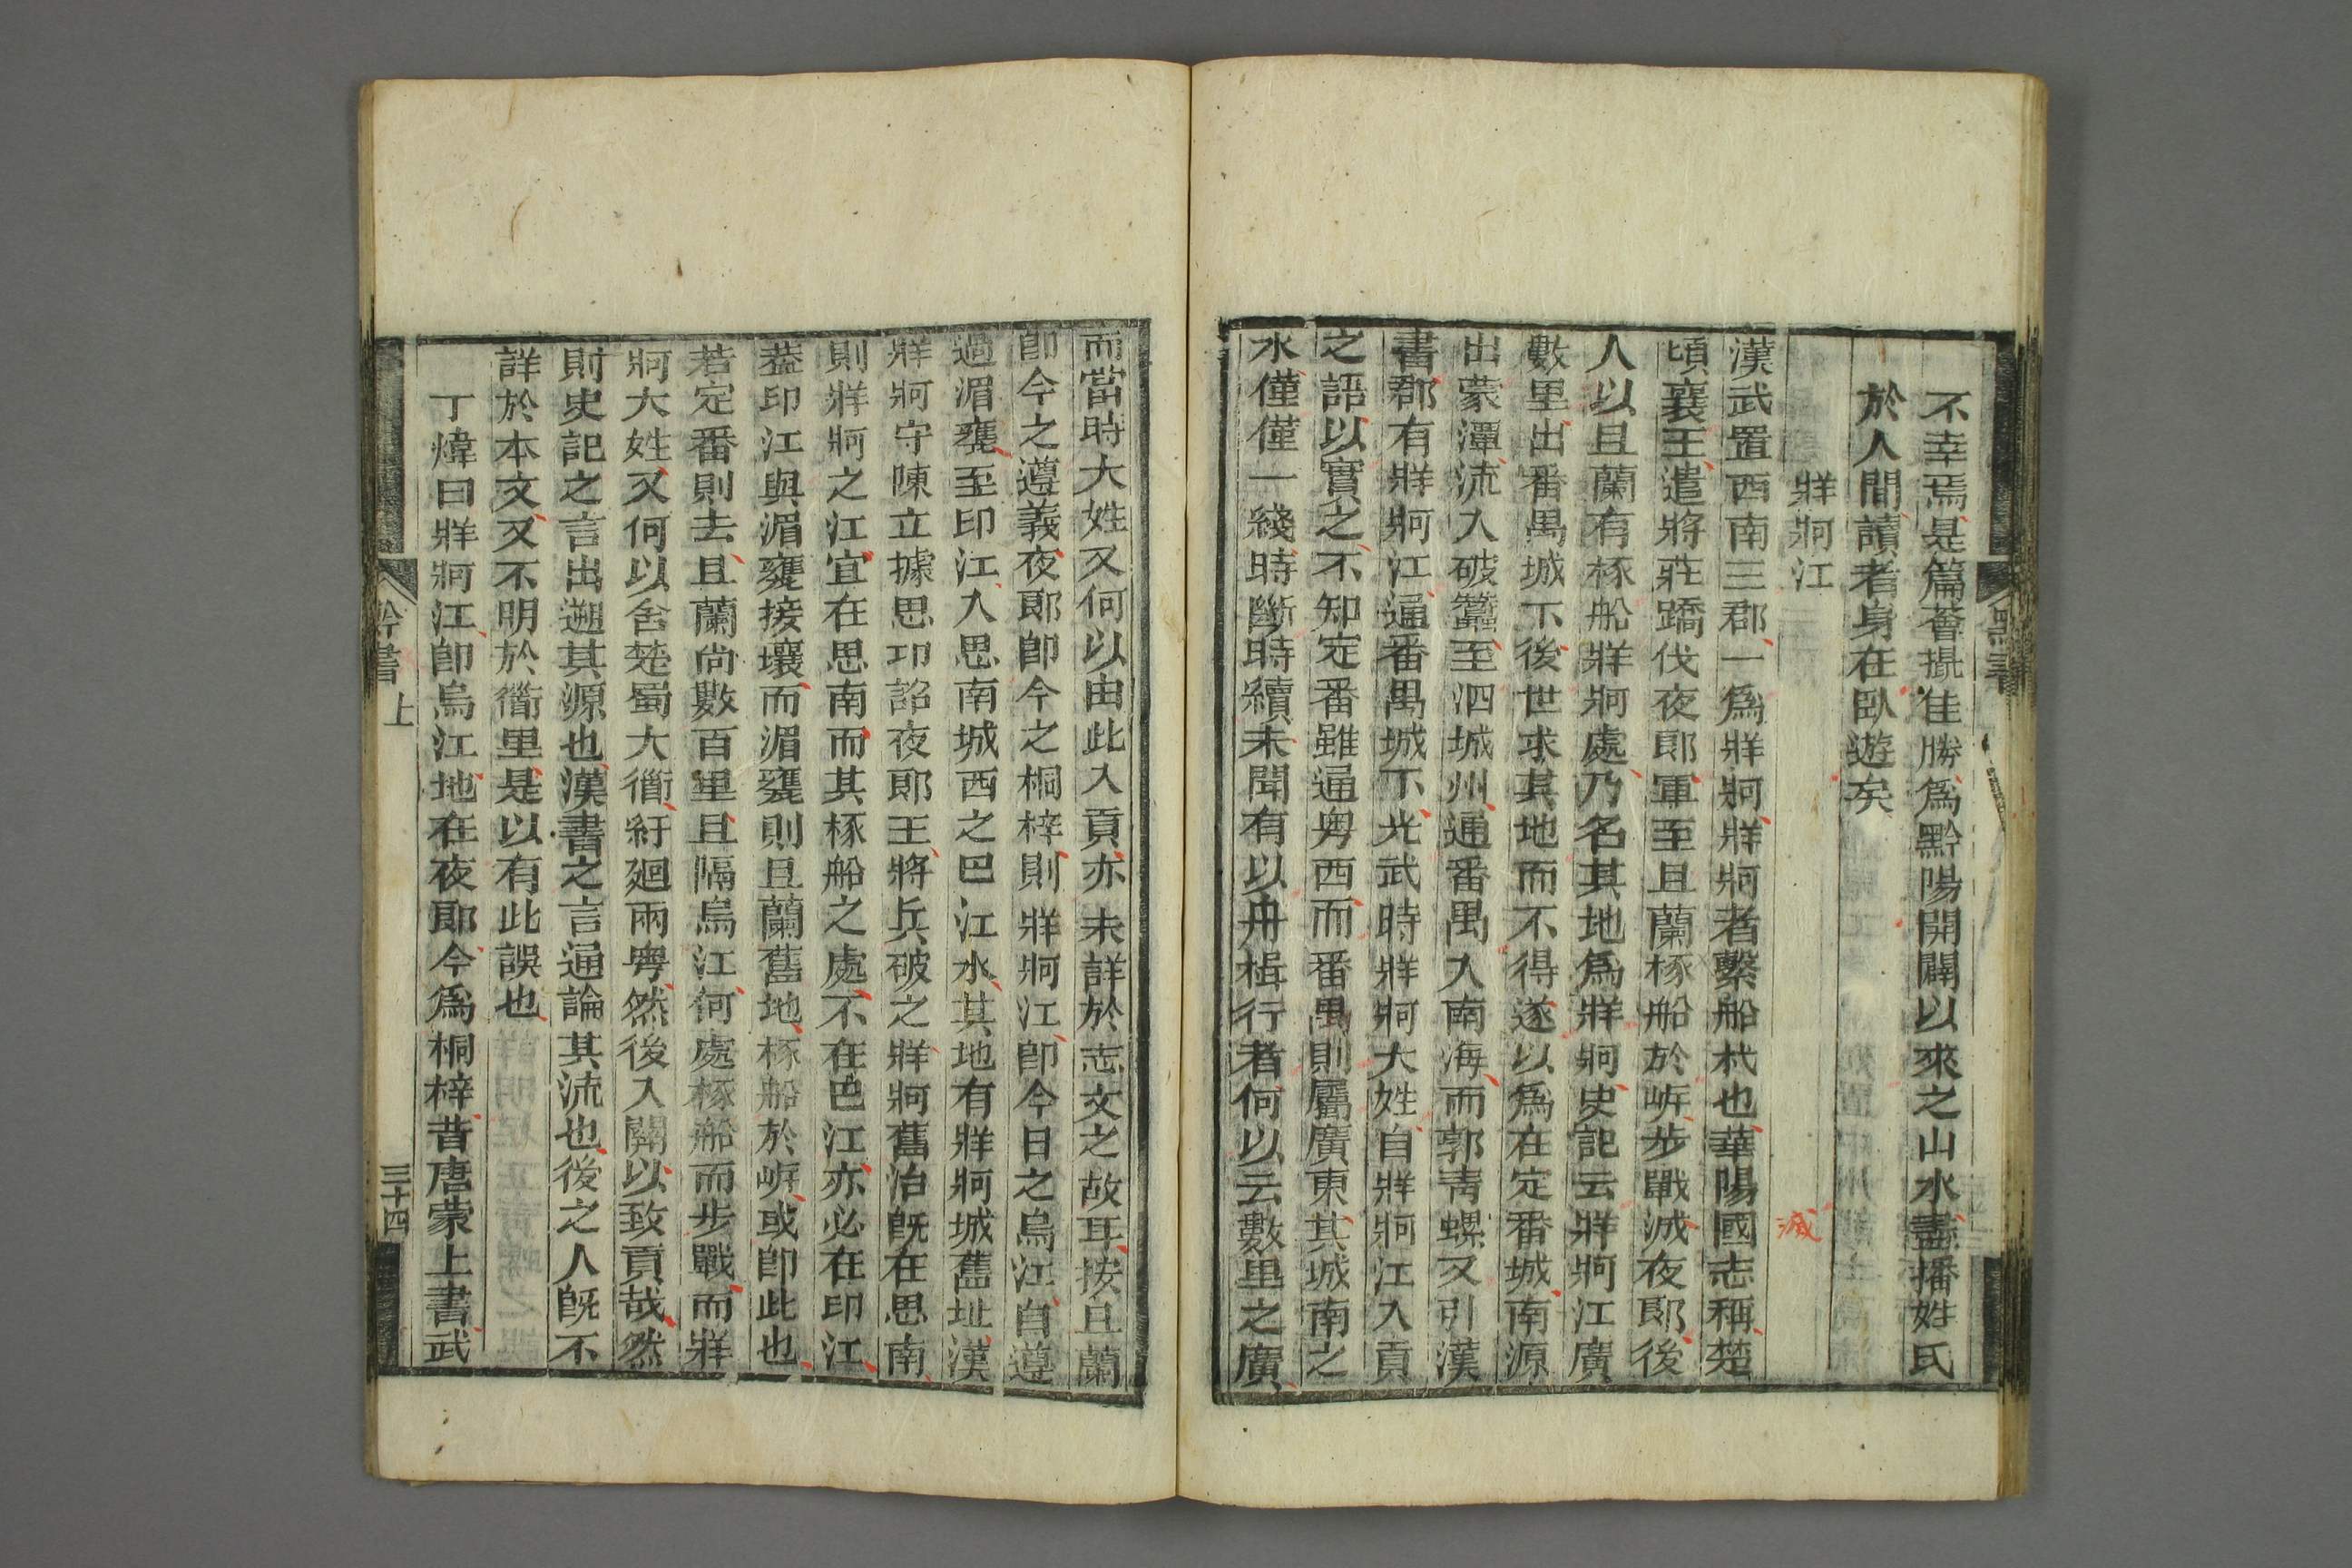 不幸焉是篇薈撮佳勝爲黔陽開闢以來之山水盡播姓氏
於人間讀者身在臥遊矣
牂牁江
漢武置西南三郡一爲牂牁牂牁者繫船杙也華陽國志稱楚
頃襄王遣將莊蹻伐夜郞軍至且蘭椓船於㟁步戰滅夜郞後
滅
人以且蘭有椓船牂牁處乃名其地爲牂牁史記云牂牁江廣
數里出番禺城下後世求其地而不得遂以爲在定番城南源
出蒙潭流入破籠至泗城州通番禺入南海而郭靑螺又引漢
書郡有牂牁江通番禺城下光武時牂牁大姓自牂牁江入貢
之語以實之不知定番雖通粤西而番禺則屬廣東其城南之
水僅僅一綫時斷時續未聞有以舟楫行者何以云數里之廣
而當時大姓又何以由此入貢亦未詳於志文之故耳按且蘭
卽今之遵義夜郞卽今之桐梓則牂牁江卽今日之烏江自遵
過湄甕至印江入思南城西之巴江水其地有牂牁城舊址漢
牂牁守陳立據思卭詔夜郞王將兵破之牂牁舊治旣在思南
則牂牁之江宜在思南而其椓船之處不在巴江亦必在印江
葢印江與湄甕接壤而湄甕則且蘭舊地椓船於㟁或卽此也
若定番則去且蘭尙數百里且隔烏江何處椓船而步戰而牂
牁大姓又何以舍楚蜀大衟紆廻兩粤然後入關以致貢哉然
則史記之言出遡其源也漢書之言通論其流也後之人旣不
詳於本文又不明於衟里是以有此誤也
丁煒曰牂牁江卽烏江地在夜郞今爲桐梓昔唐蒙上書武
黔書 上
三十四